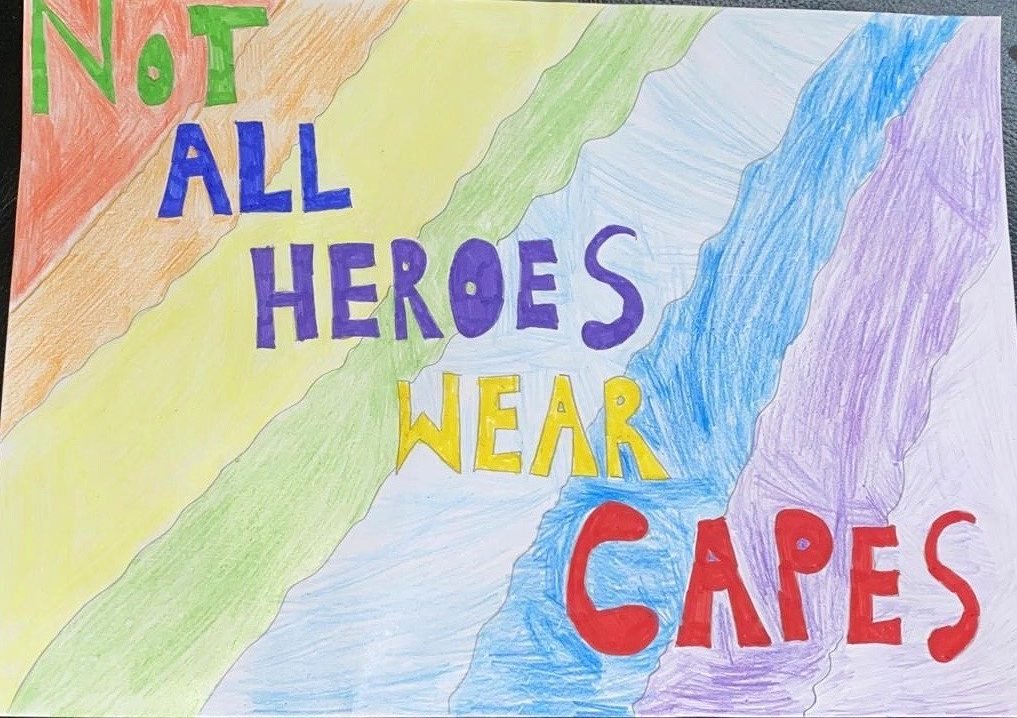 NoT
ALL
HEROES
WEAR
CAPES